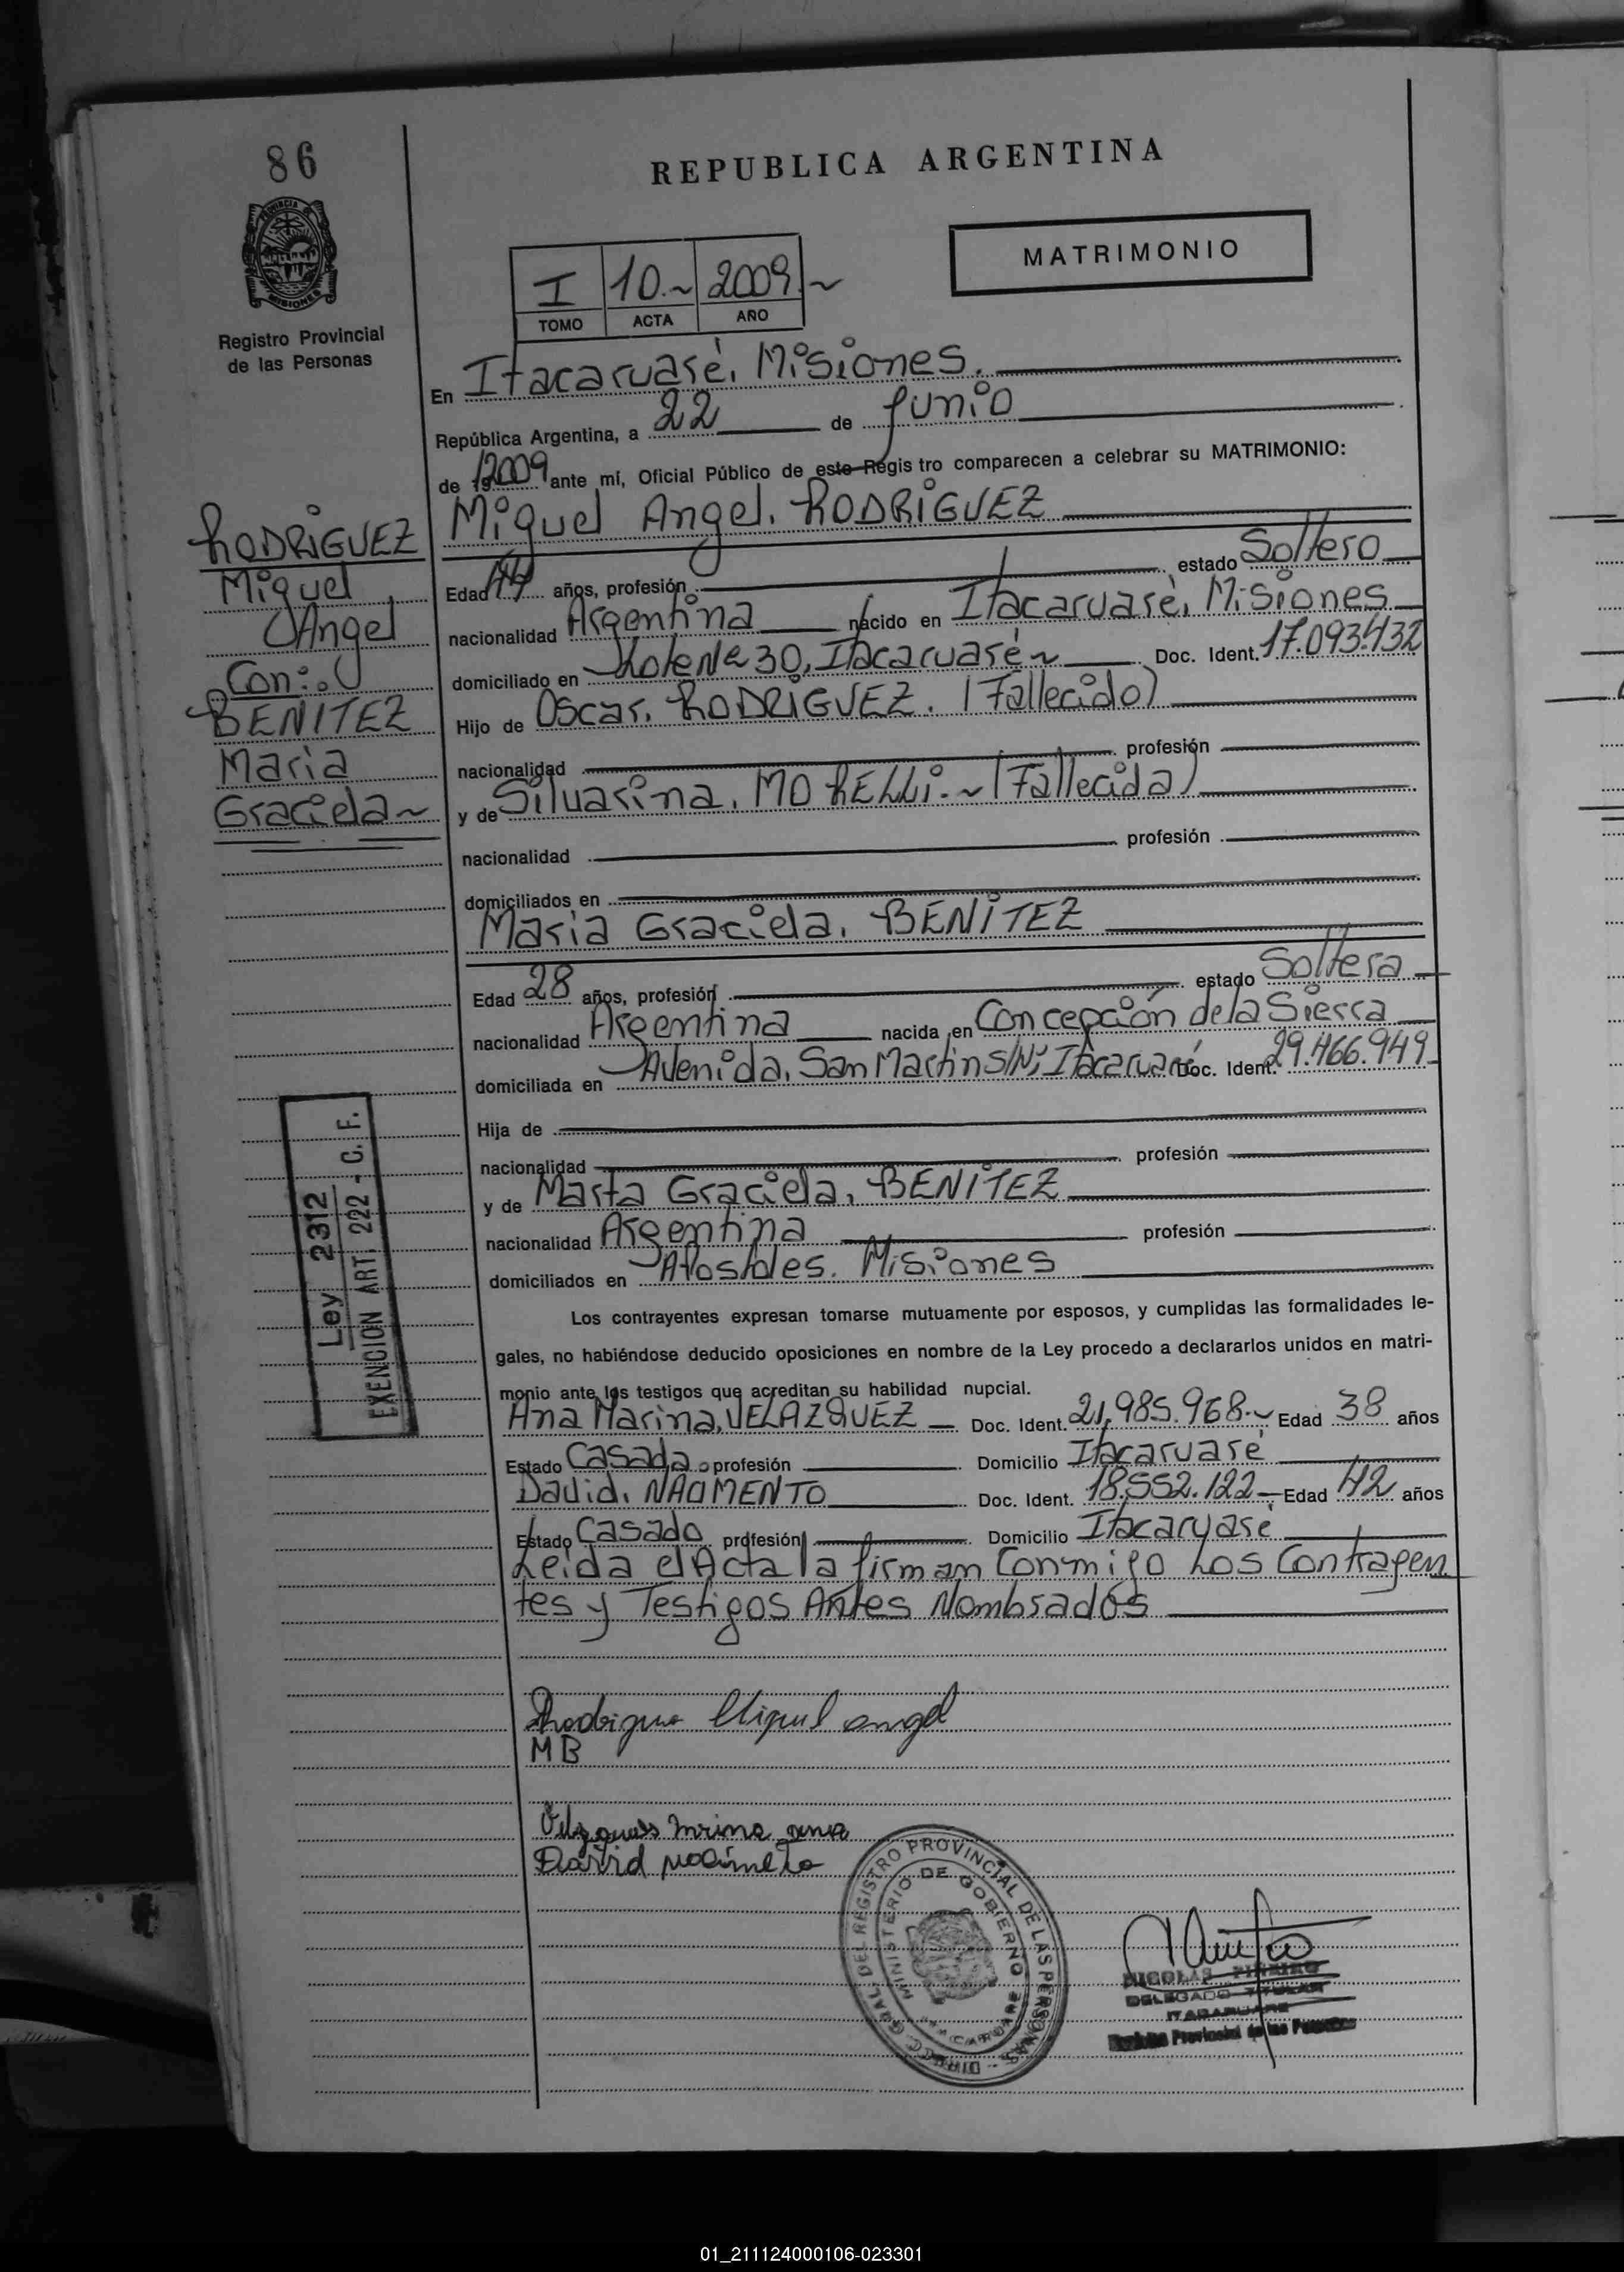 86
REPUBLICA ARGENTINA
PROVINCIA DE MISIONES
Registro Provincial
de las Personas
MATRIMONIO
I 10.~ 2009.~
TOMO ACTA AÑO
En Itacaruaré, Misiones.
República Argentina, a 22 de Junio
de 2009 ante mí, Oficial Público de este Registro comparecen a celebrar su MATRIMONIO:
RODRIGUEZ
Miguel
Angel
Con:
BENITEZ
Maria
Graciela~
Miguel Angel, RODRIGUEZ
Edad 44 años, profesión estado Soltero
nacionalidad Argentina nacido en Itacaruaré, Misiones
domiciliado en Lote Nº 30, Itacaruaré~ Doc. Ident. 17.093.432
Hijo de Oscar, RODRIGUEZ. (Fallecido)
nacionalidad profesión
y de Silvarina, MORELLI.~(Fallecida)
nacionalidad profesión
domiciliados en
Maria Graciela, BENITEZ
Edad 28 años, profesión estado Soltera
nacionalidad Argentina nacida en Concepción de la Sierra
domiciliada en Avenida, San Martin S/Nº, Itacaruaré Doc. Ident. 29.466.949
Hija de
nacionalidad profesión
y de Marta Graciela, BENITEZ
nacionalidad Argentina profesión
domiciliados en Apostoles. Misiones
Ley 2312
EXENCION ART. 222 - C. F.
Los contrayentes expresan tomarse mutuamente por esposos, y cumplidas las formalidades le-
gales, no habiéndose deducido oposiciones en nombre de la Ley procedo a declararlos unidos en matri-
monio ante los testigos que acreditan su habilidad nupcial.
Ana Marina, VELAZQUEZ Doc. Ident. 21.985.968.~ Edad 38 años
Estado Casada profesión Domicilio Itacaruaré
David, NACIMENTO Doc. Ident. 18.552.122 Edad 42 años
Estado Casado profesión Domicilio Itacaruaré
Leida el Acta la firman Conmigo Los Contrayen
tes y Testigos Antes Nombrados
Rodrigue Miguel angel
MB
Velzques mrina ana
David nacimeto
DIRECC. GRAL. DEL REGISTRO PROVINCIAL DE LAS PERSONAS
MINISTERIO DE GOBIERNO
NICOLAS PIÑEIRO
DELEGADO TITULAR
ITACARUARE
Provincial de las Personas
01_211124000106-023301